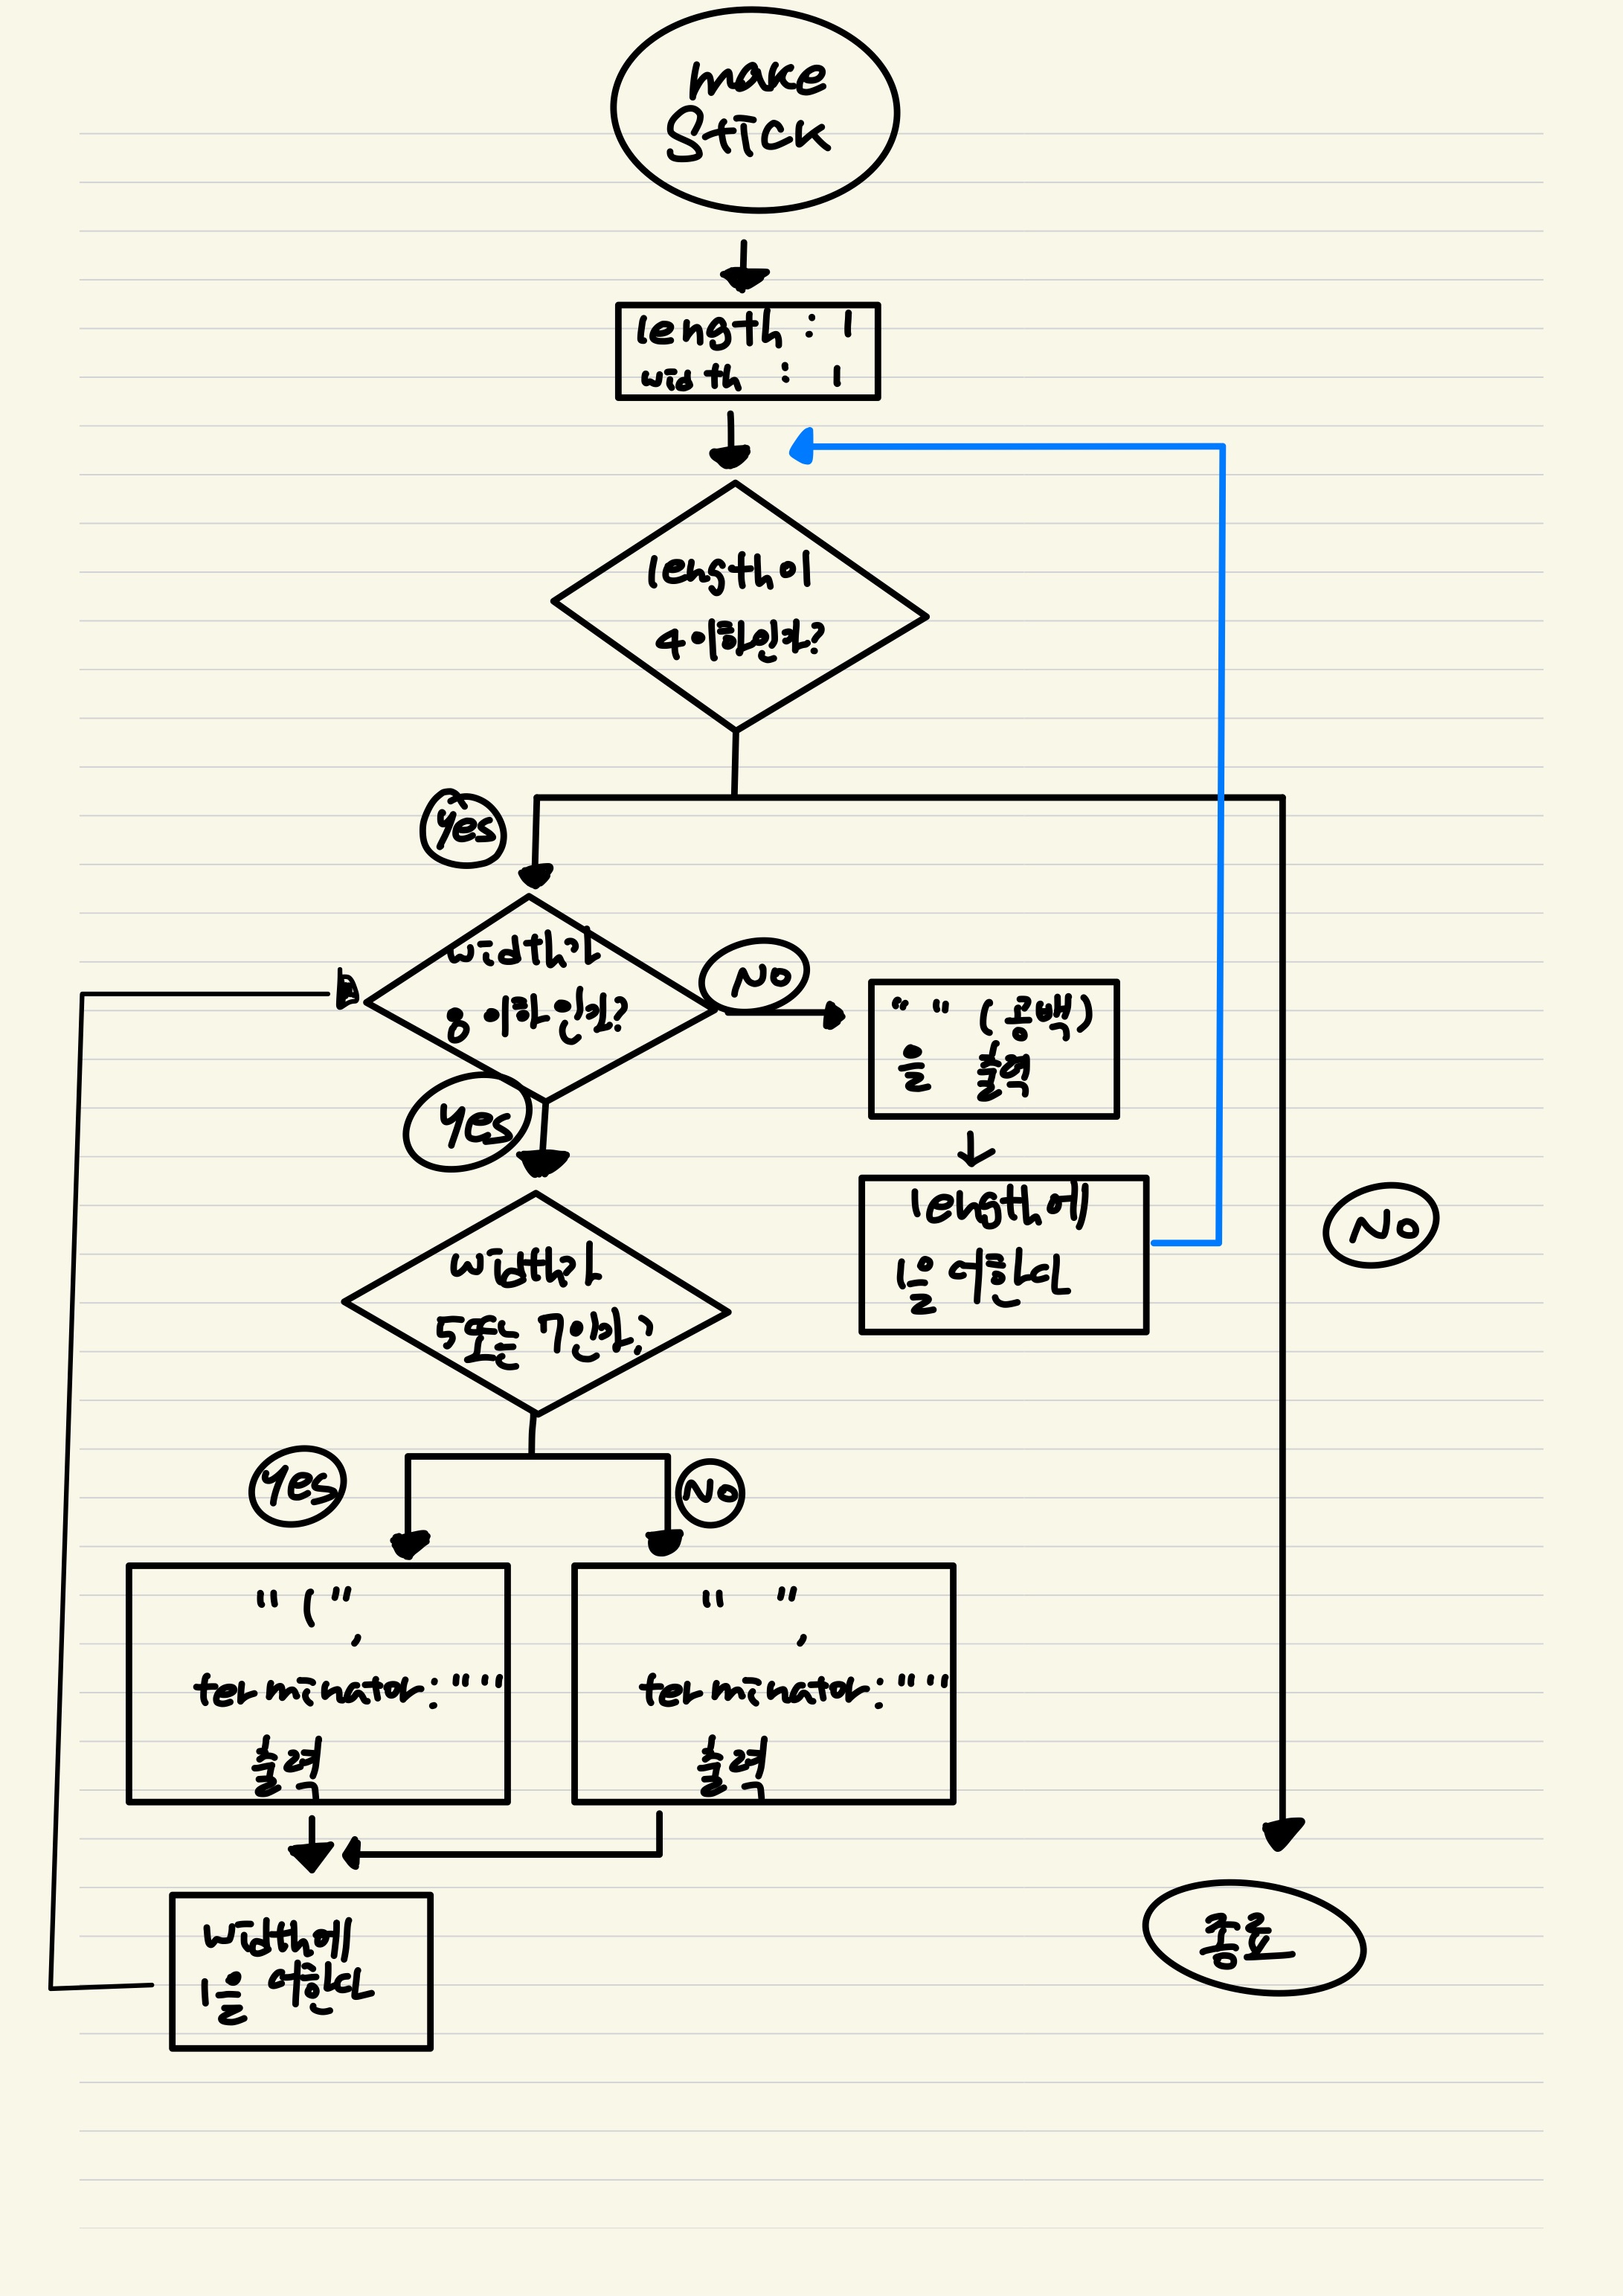 make
Stick
length : 1
width : 1
length이
4이하인가?
Yes
width가
8 이하인가?
No
" " (공백)
을 출력
Yes
length에
1을 더한다
No
width가
5또는 7인가?
Yes
No
" ( ",
terminator:" "
출력
"   ",
terminator:" "
출력
width에
1을 더한다
종료